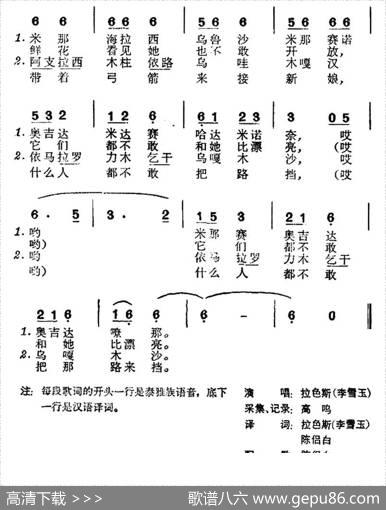 6 6 6 6 5 6 6 5 6 6 6
1. 米 那 海 拉 西 乌 鲁 沙 米 那 赛 诺
鲜 花 看 见 她 也 不 敢 开 放,
2. 阿 支 拉 西 木 柱 依 路 乌 哇 木 嘎 汉
带 着 弓 箭 来 接 新 娘,
5 3 2 1 2 6 6 1 2 3 3 0 5
1. 奥 吉 达 米 达 赛 哈 达 米 诺 奈,(哎
它 们 都 不 敢 和 她 比 漂 亮,(哎
2. 依 马 拉 罗 力 木 乞 干 乌 嘎 木 沙,(哎
什 么 人 都 不 敢 把 路 挡,(哎
6· 5 3· 2 1 5 3 2 1 6
1. 哟 米 那 赛 奥 吉 达
哟) 它 们 都 不 敢
2. 哟 依 马 拉 罗 力 木 乞 干
哟) 什 么 人 都 不 敢
2 1 6 1 6 6 6 - 6 0
1. 奥 吉 达 嘹 那。
和 她 比 漂 亮。
2. 乌 嘎 木 沙。
把 那 路 来 挡。
注:每段歌词的开头一行是泰雅族语音,底下一行是汉语译词。
演 唱:拉色斯(李雪玉)
采集、记录:高 鸣
译 词:拉色斯(李雪玉)
陈侣白
高清下载 >>>
歌谱八六 www.gepu86.com